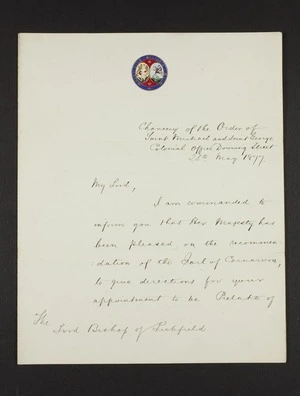 Chancery of the Order of
Saint Michael and Saint George
Colonial Office Downing Street
May 1877
My Lord,
I am commanded to
inform you that Her Majesty has
been pleased on the recommen-
dation of the Earl of Carnarvon,
to give directions for your
appointment to be Prelate of
The
Lord Bishop of Lichfield